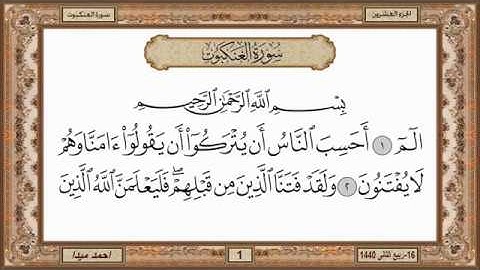 سورة العنكبوت
الجزء العشرين
سُورَةُ العَنكَبُوتِ
بِسْمِ ٱللَّهِ ٱلرَّحْمَٰنِ ٱلرَّحِيمِ
الٓمٓ ١ أَحَسِبَ ٱلنَّاسُ أَن يُتْرَكُوٓا۟ أَن يَقُولُوٓا۟ ءَامَنَّا وَهُمْ
لَا يُفْتَنُونَ ٢ وَلَقَدْ فَتَنَّا ٱلَّذِينَ مِن قَبْلِهِمْ ۖ فَلَيَعْلَمَنَّ ٱللَّهُ ٱلَّذِينَ
16-ربيع الثاني 1440
1
احمد ميدا